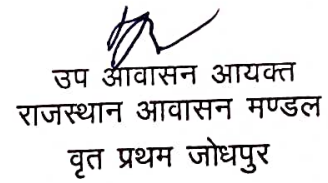 उप आवासन आयक्त
राजस्थान आवासन मण्डल
वृत प्रथम जोधपुर